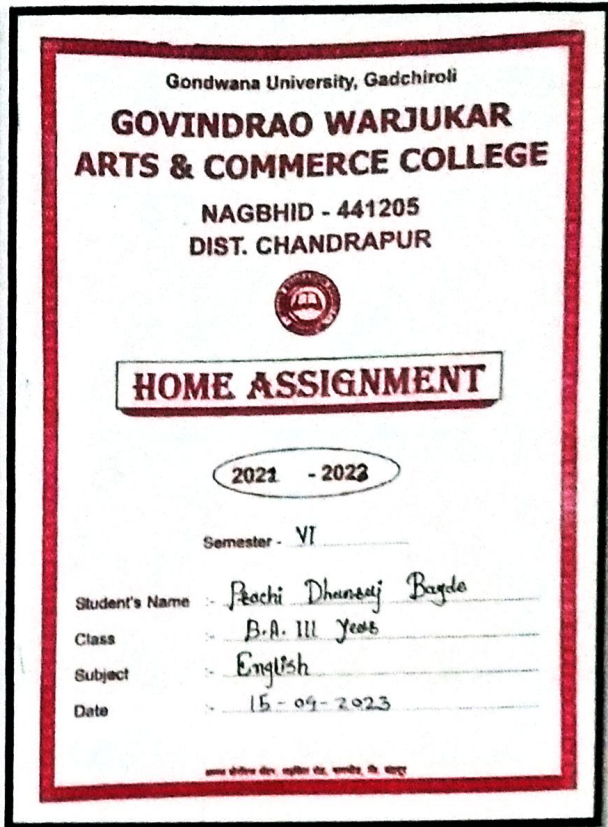 Gondwana University, Gadchiroli
GOVINDRAO WARJUKAR
ARTS & COMMERCE COLLEGE
NAGBHID - 441205
DIST. CHANDRAPUR
HOME ASSIGNMENT
2022 - 2023
Semester - VI
Student's Name :- Prachi Dhanraj Bagde
Class :- B.A. III Year
Subject :- English
Date :- 15-04-2023